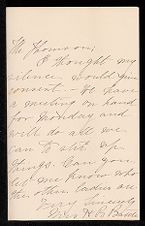 Mr Thomson;
I thought my
silence would give
consent. We have
a meeting on hand
for Monday and
will do all we
can to stir up
things. Can you
let me know who
the other ladies are
Very Sincerely
Mrs H. B.